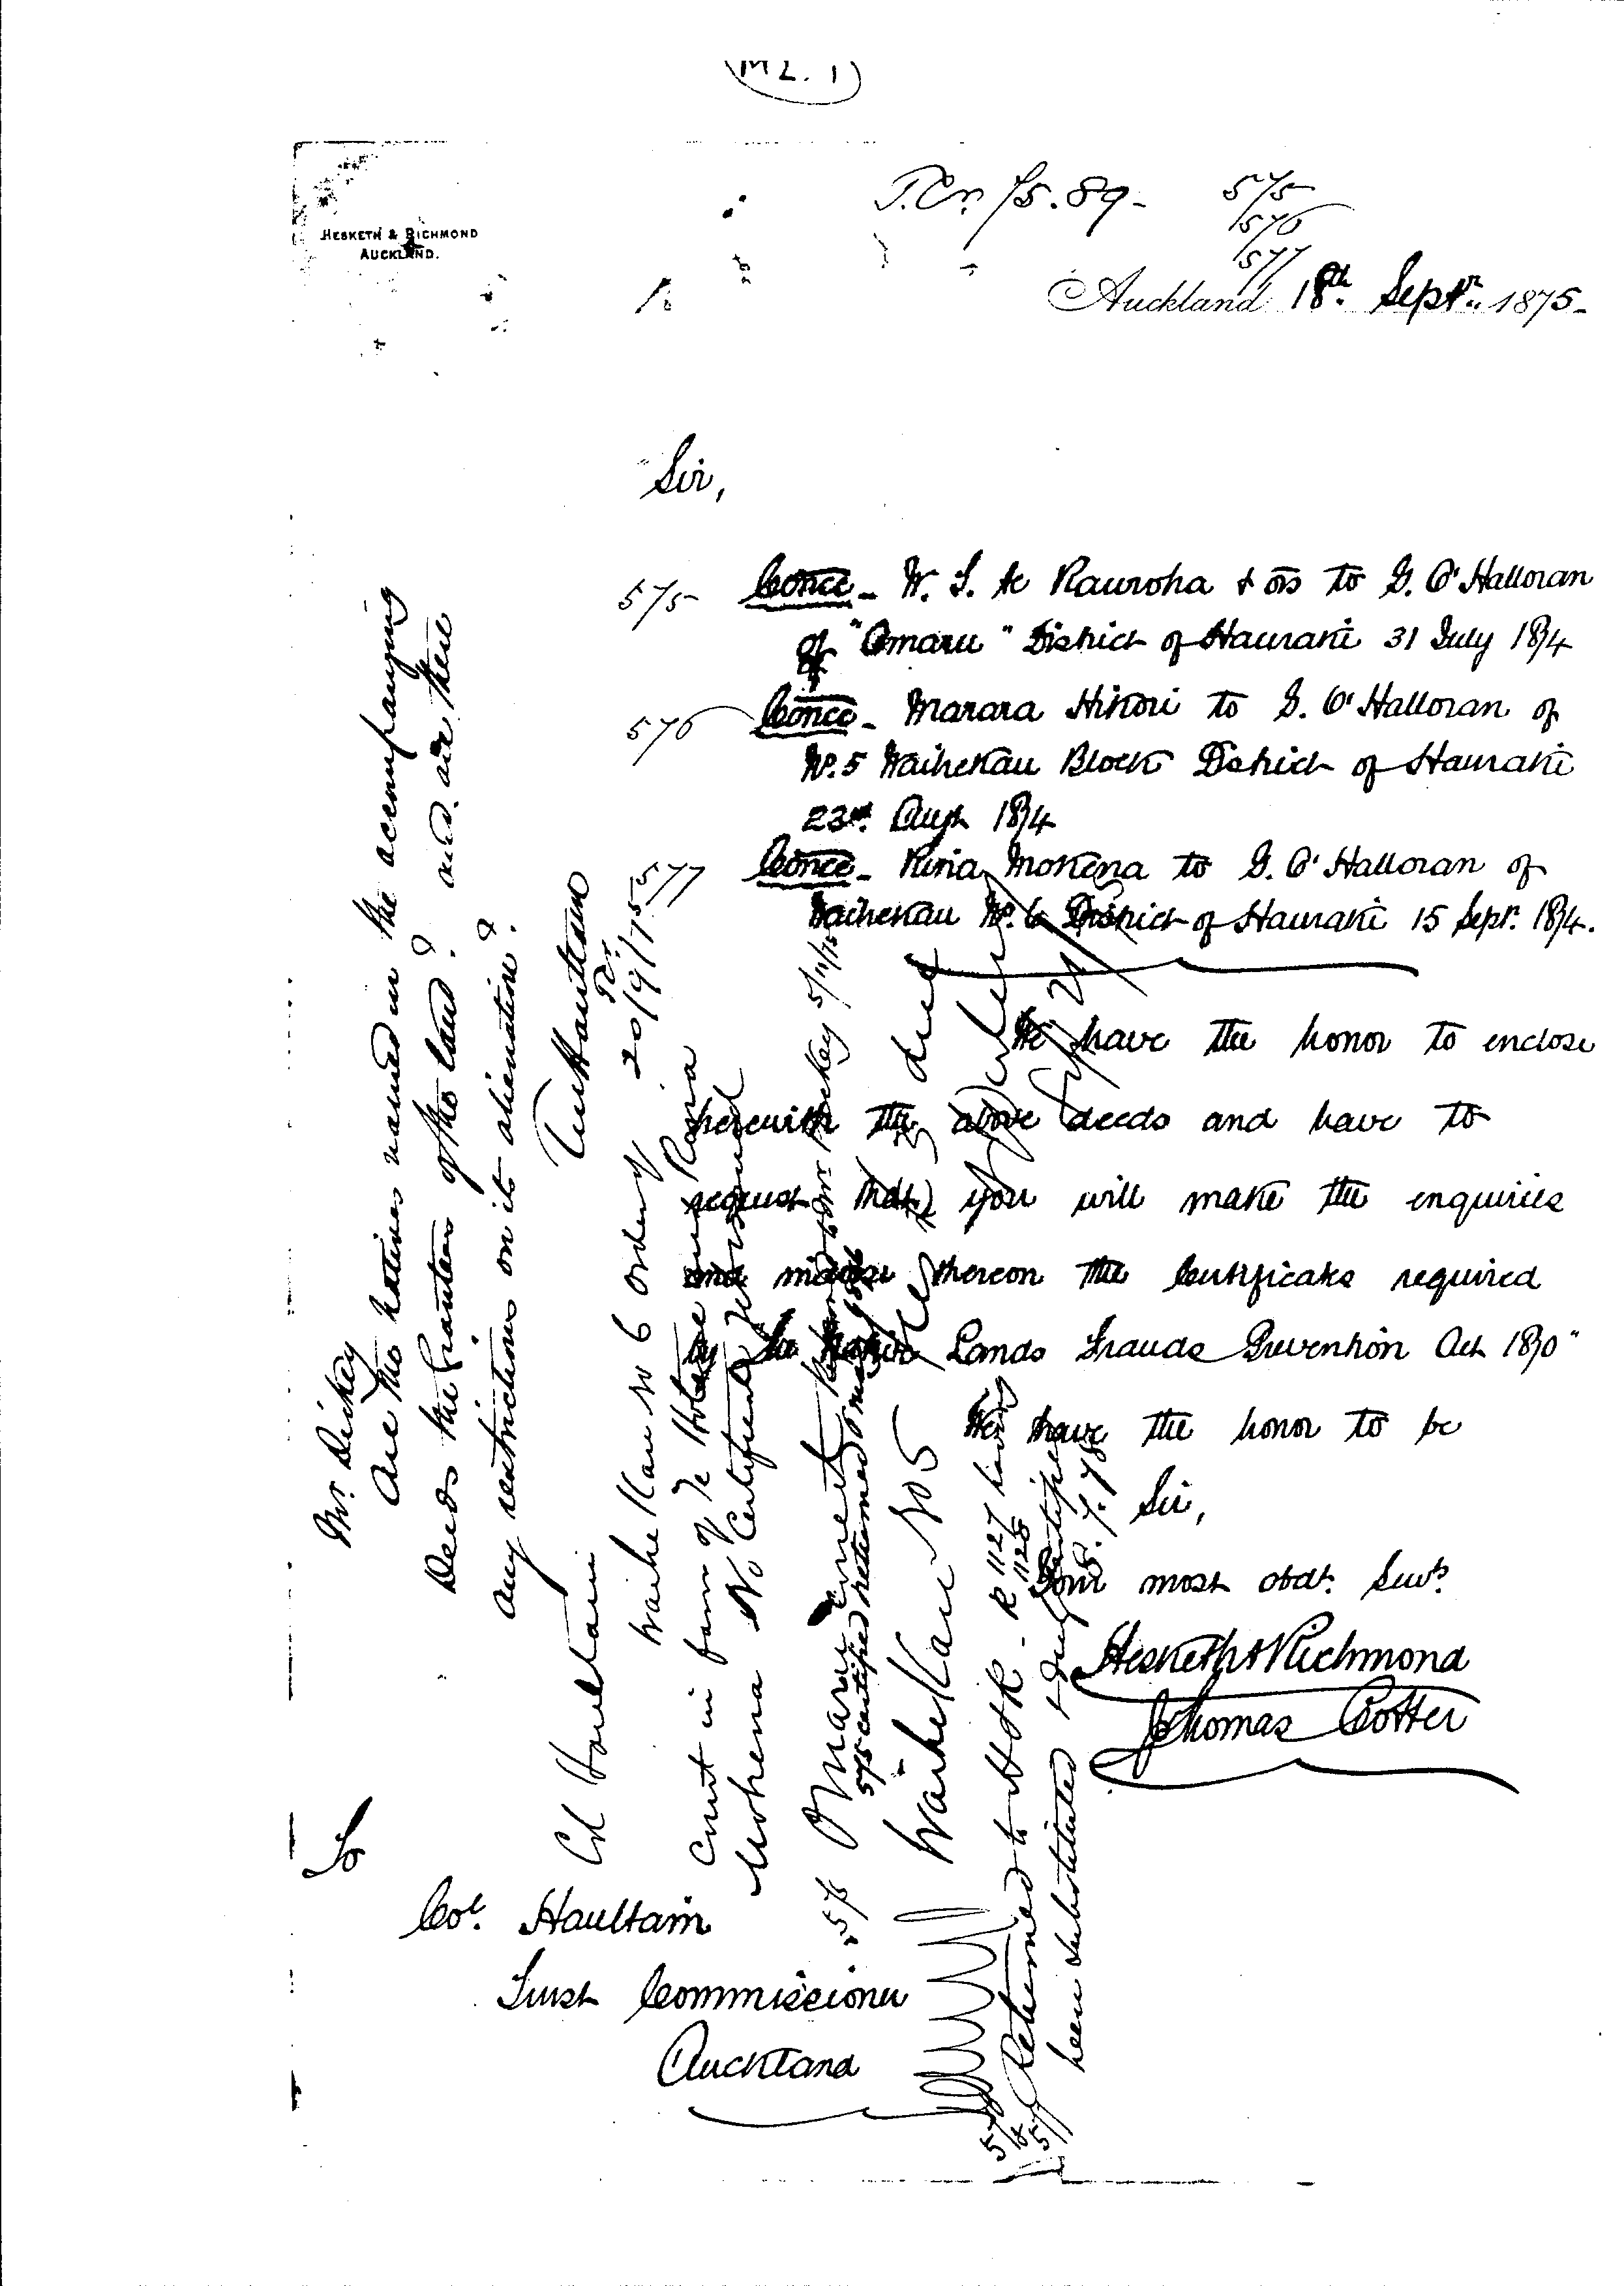 (M L. 1)
T.Cr. 75.89-
575
576
577
HESKETH & RICHMOND
AUCKLAND.
Auckland 18th Septr. 1875-
Sir,
575 Conce - W. T. te Rauroha & ors to G. O'Halloran
of "Omaru" District of Hauraki 31 July 1874
576 Conce - Marara Hikori to G. O'Halloran of
No. 5 Waihekau Block District of Hauraki
23rd. Augt 1874
577 Conce - Riria Mokena to G. O'Halloran of
Waihekau No. 6 District of Hauraki 15 Sept. 1874.
We have the honor to enclose
herewith the above deeds and have to
request that you will make the enquiries
and indorse thereon the Certificate required
by the Native Lands Frauds Prevention Act 1870"
We have the honor to be
Sir,
Your most obdt. Servts
Hesketh & Richmond
Thomas Cotter
To
Col. Haultain
Trust Commissioner
Auckland
Mr. Dickey
Are the natives named in the accompanying
Deeds the Grantees of the land? and are there
any restrictions on its alienation?
T M Haultain
TCr.
20/9/75
Col Haultain
Waihekau No 6 order of
Court in favor of Te Hotene Riria
Mokena No Certificate yet issued
575 Omaru
575 certified & returned
Waihekau No 5
576
577 Returned to H & R - R 1127 having
1128
been substituted & duly certified
8.7.78